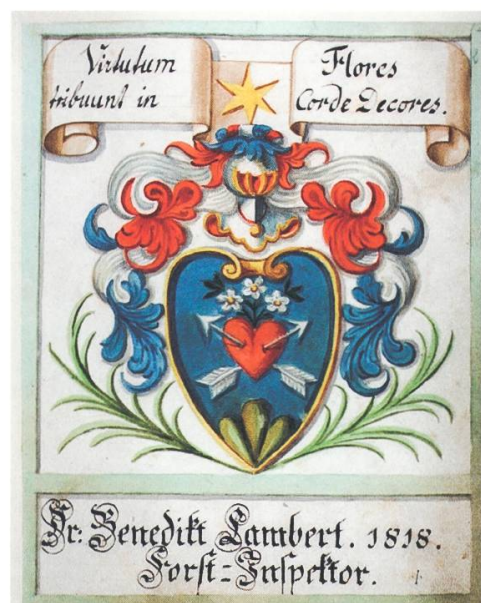 Virtutum
tribuunt in
Flores
Corde Decores.
Fr: Benedikt Lambert. 1818.
Forst=Inspektor.